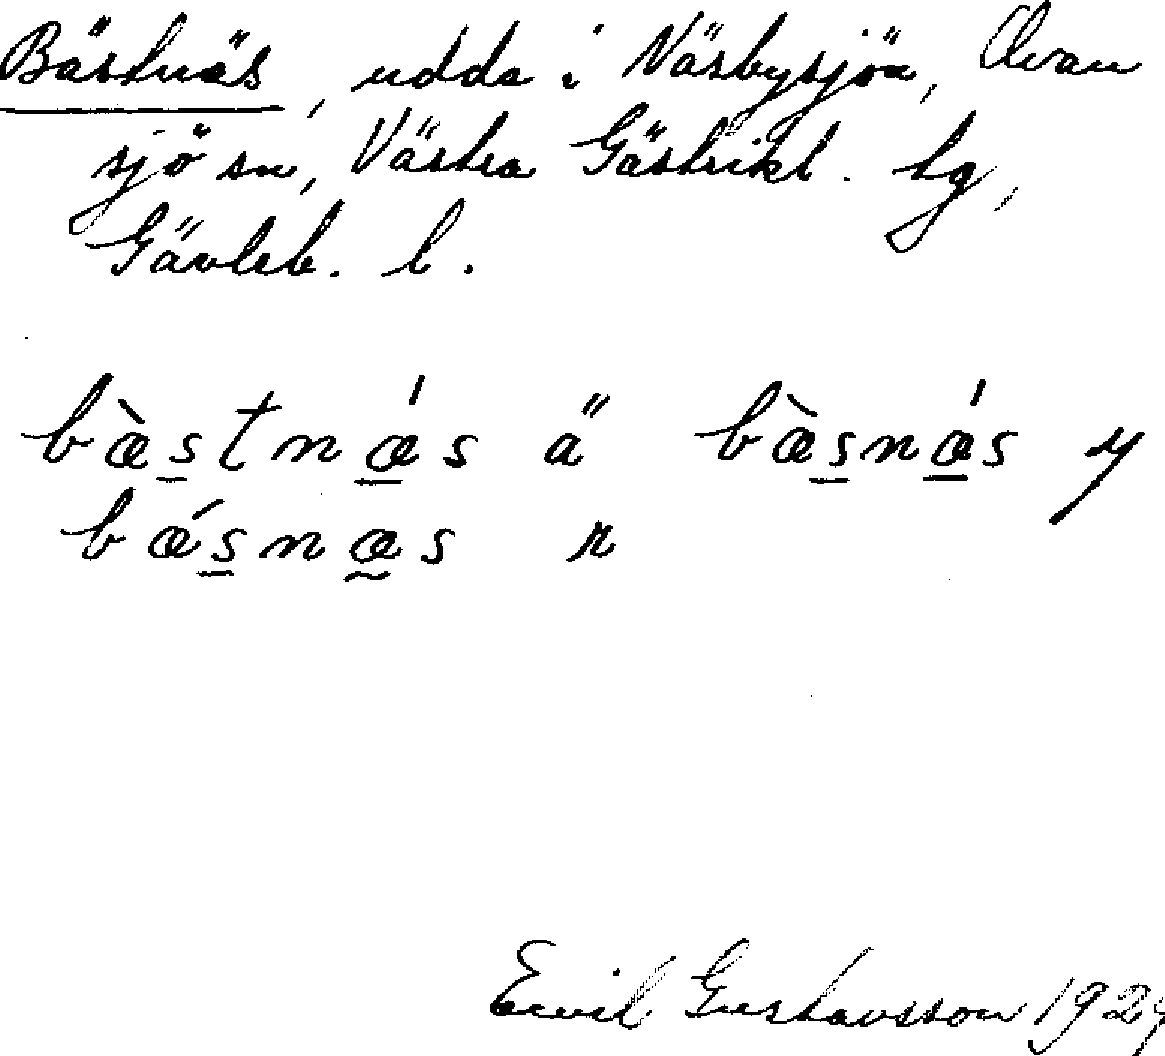 Bästnäs, udde i Näsbysjön, Ovan
sjö sn, Västra Gästrikl. tg,
Gävleb. l.
bæ̀s̲tnǽ̲s ä bæ̀s̲nǽ̲s y
bǽs̲næ̰s n
Emil Gustavsson